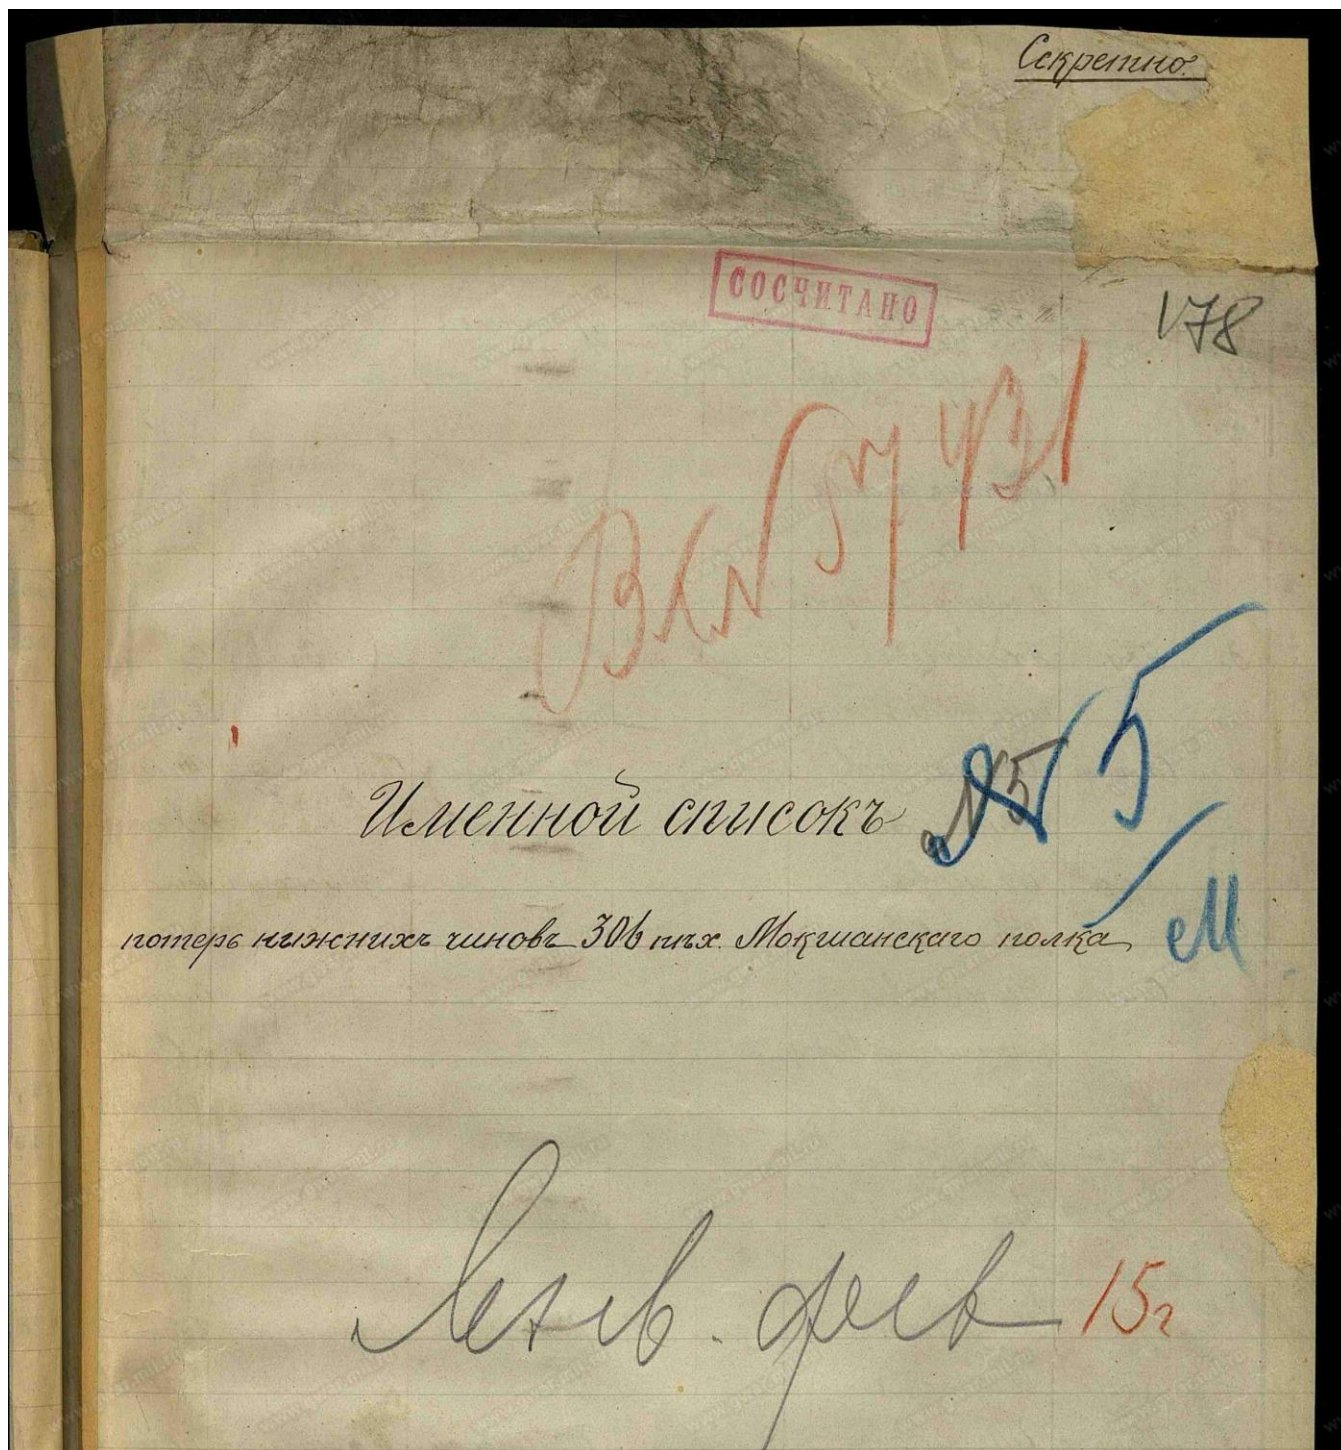 Секретно.
СОСЧИТАНО
178
431
Именной списокъ
№ 5
№ 5
М
потерь нижнихъ чиновъ 306 пѣх. Мокшанскаго полка
Янв. фев 15г